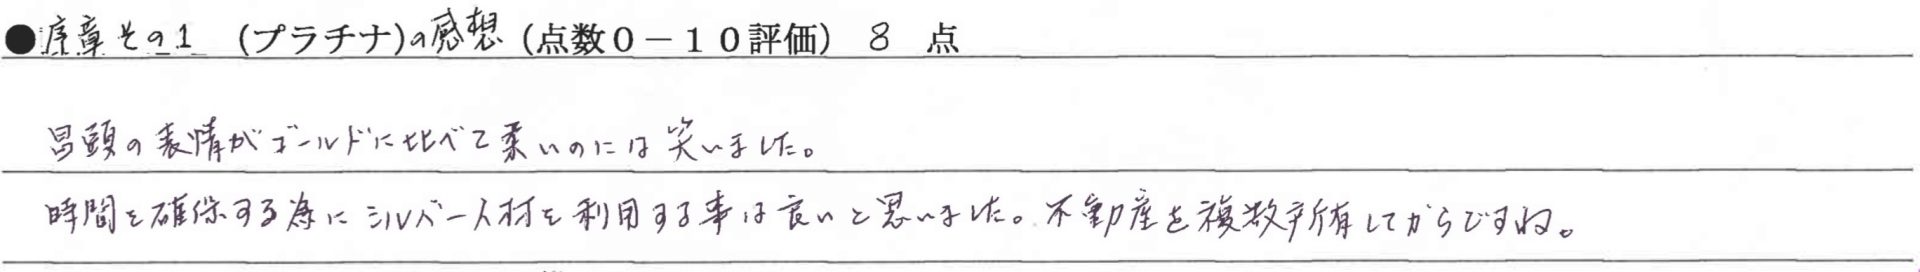 ●序章その1 (プラチナ)の感想 (点数0－10評価) 8 点
冒頭の表情がゴールドに比べて柔いのには笑いました。
時間を確保する為にシルバー人材を利用する事は良いと思いました。不動産を複数戸所有してからですね。